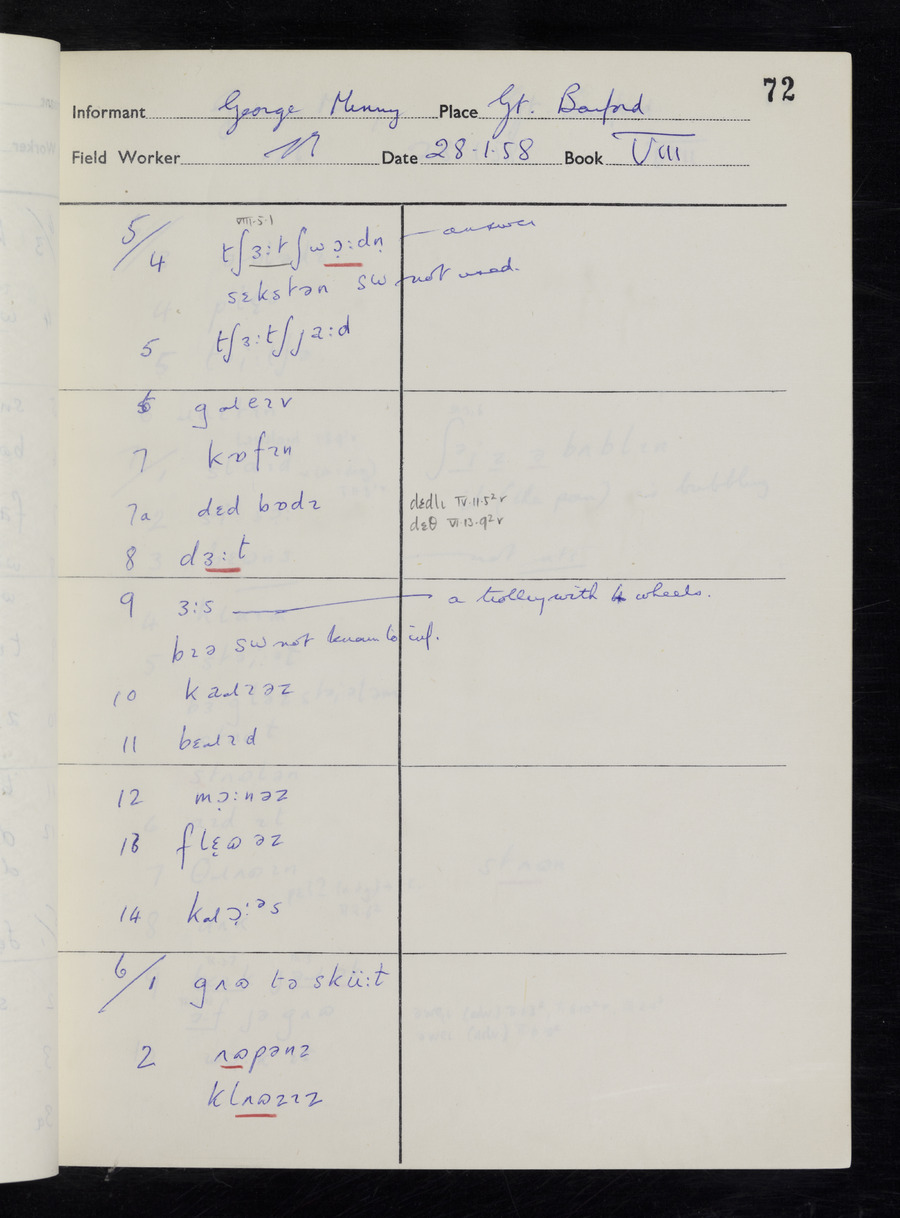 72
Informant George Minny Place Gt. Barford
Field Worker Date 28.1.58 Book VIII
5/4 VIII.5.1 tʃɜ:tʃwɔ̣:dn̩ — answer
sɛkstən sw not used.
5 tʃɜ:tʃjɑ:d
6 gɹeɪv
7 kɒfɪn
7a dɛd bɒdɪ dɛdlɪ IV.11.5²v
dɛθ VI.13.9²v
8 dɜ:t
9 ɜ:s — a trolley with 4 wheels.
bɪə sw not known to inf.
10 kaɹɪəz
11 bɛɹɪd
12 mɔ̣:nəz
13 flɛ̣ʊəz
14 kɹɔ̣:ᵊs
6/1 gʌʊ tə skü:t
2 ʌʊpənz
klʌʊzɪz